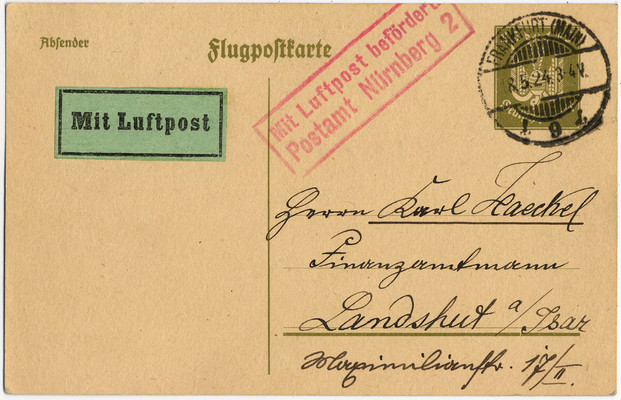 Absender
Flugpostkarte
Mit Luftpost befördert
Postamt Nürnberg 2
FRANKFURT (MAIN)
8.5.24.3-4N.
1 9 z.
Mit Luftpost
Herrn Karl Haeckel
Finanzamtmann
Landshut a/Isar
Maximilianstr. 17/II